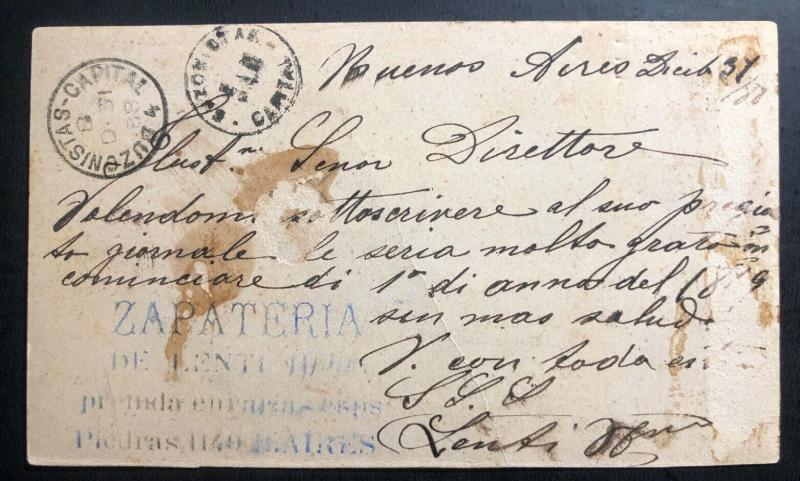 BUZONISTAS - CAPITAL
4 BUZONISTAS-CAPITAL
Buenos Aires Dicib 31/88
Ilust.mi Senor Direttore
Volendomi sottoscrivere al suo pregia
to giornale le seria molto grato
cominciare di 1º di anna del 1889
sin mas salud
V. con toda
S S S
Lenti Hno
ZAPATERIA
DE LENTI
premda en varias esps
Piedras, 1140 B. AIRES